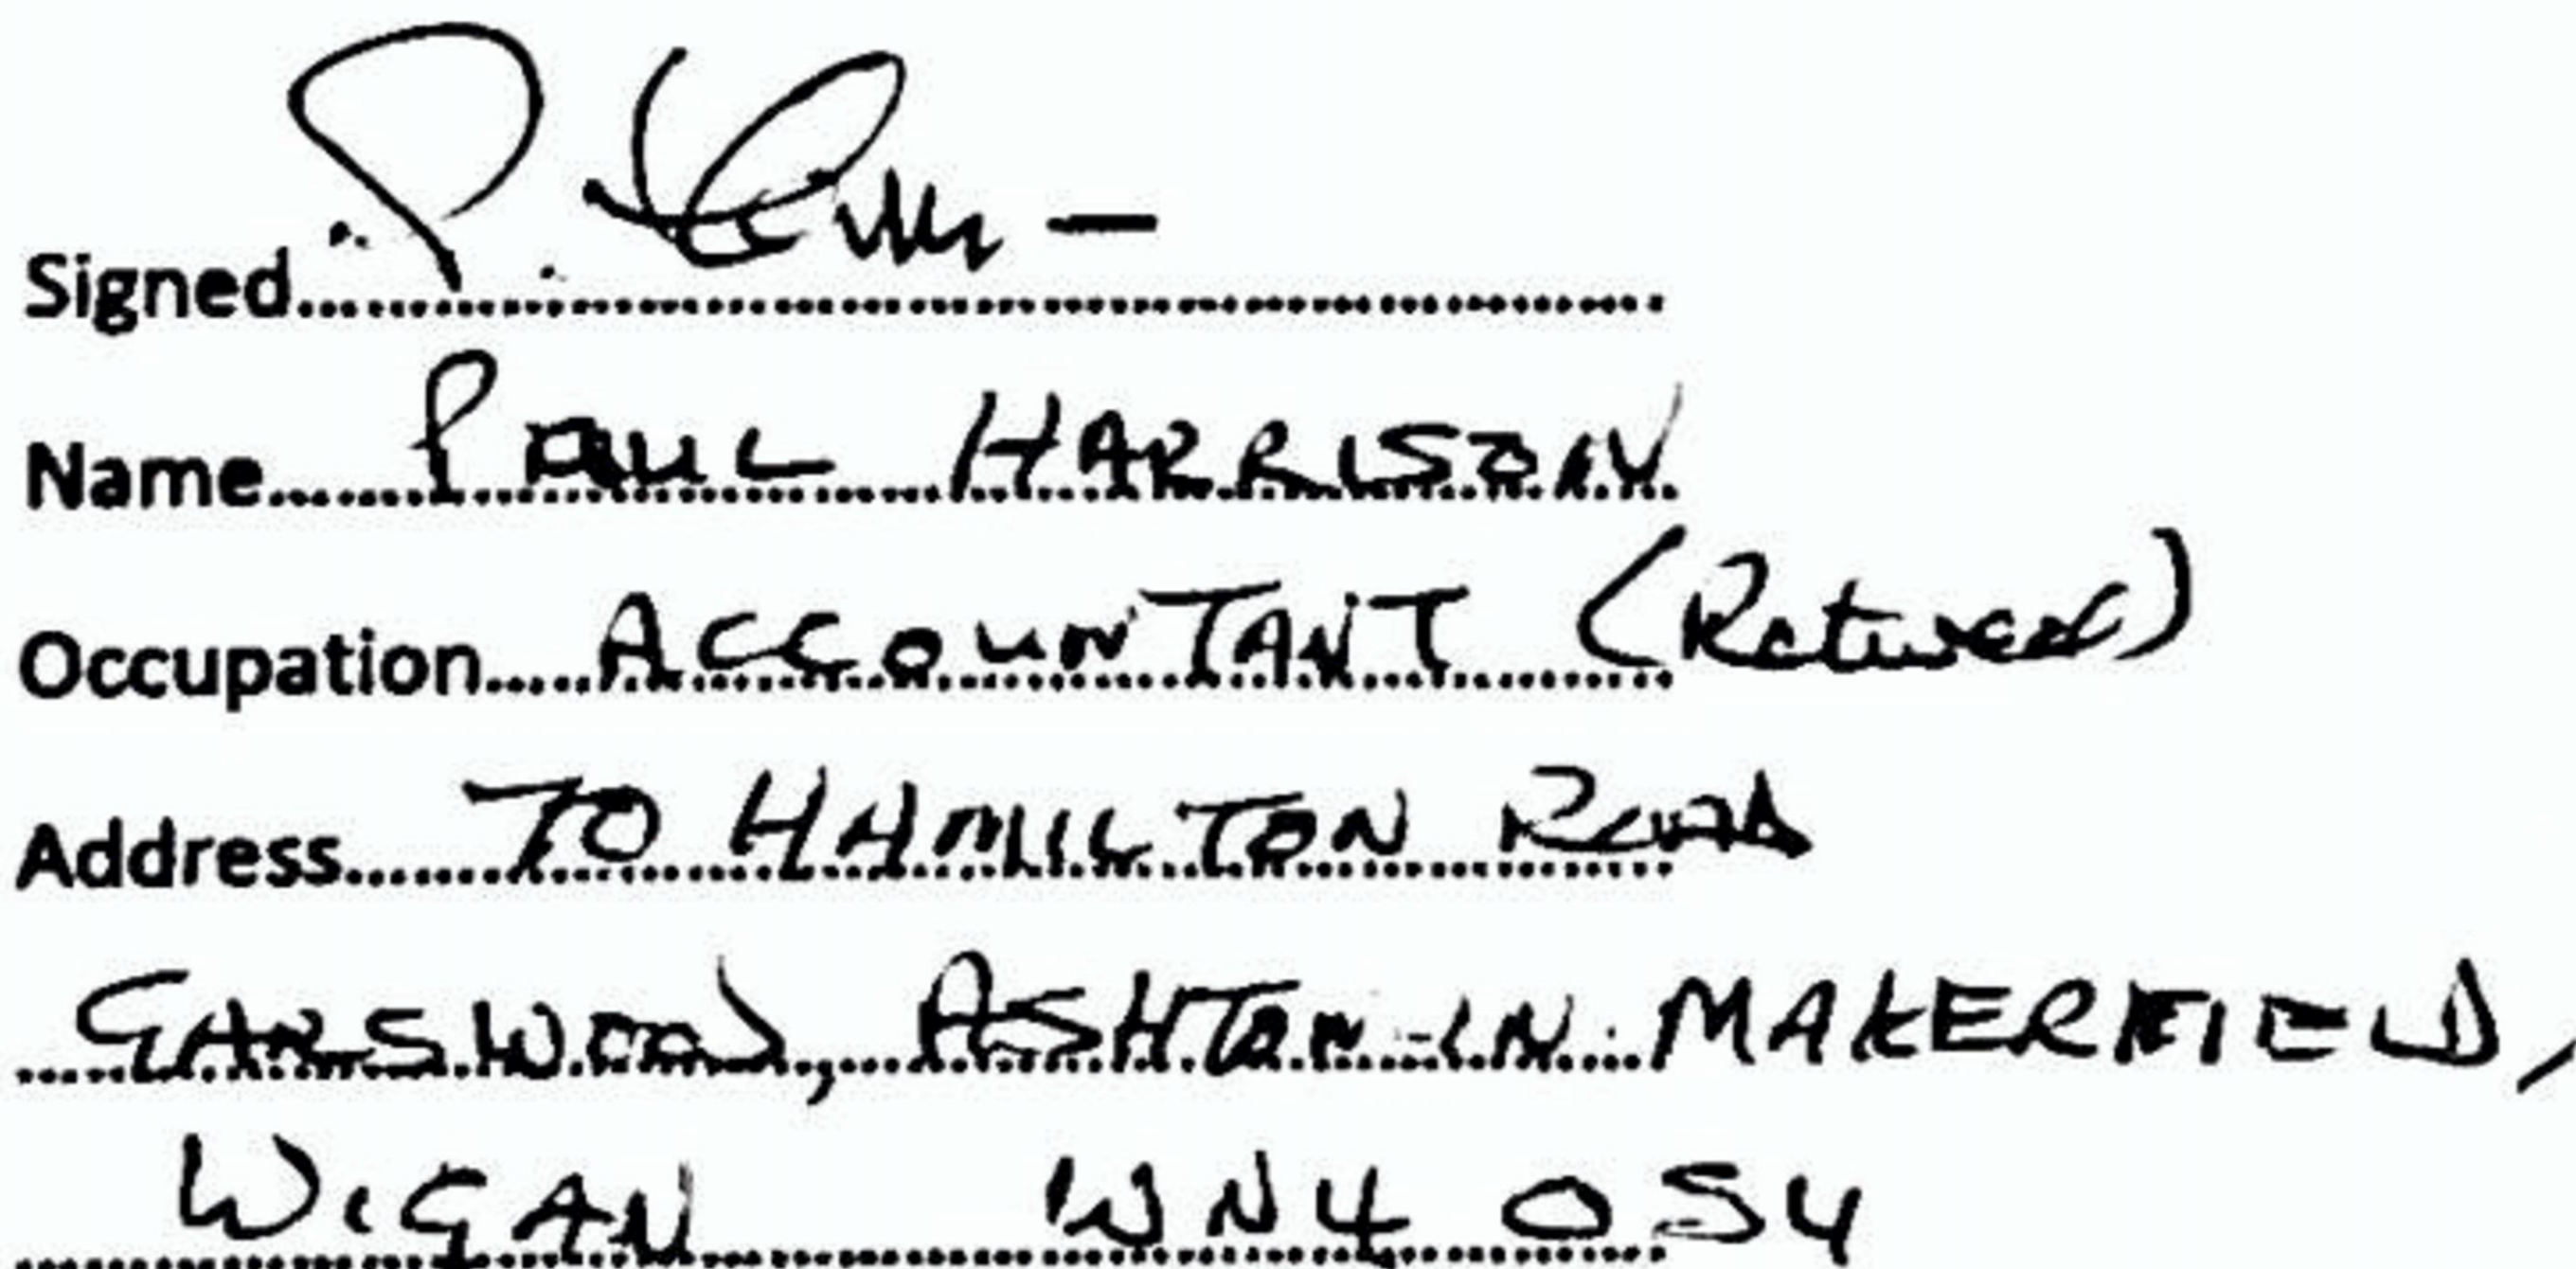 Signed P. Harrison
Name PAUL HARRISON
Occupation ACCOUNTANT (Retired)
Address 70 HAMILTON ROAD
GARSWOOD, ASHTON-IN-MAKERFIELD,
WIGAN WN4 0SY